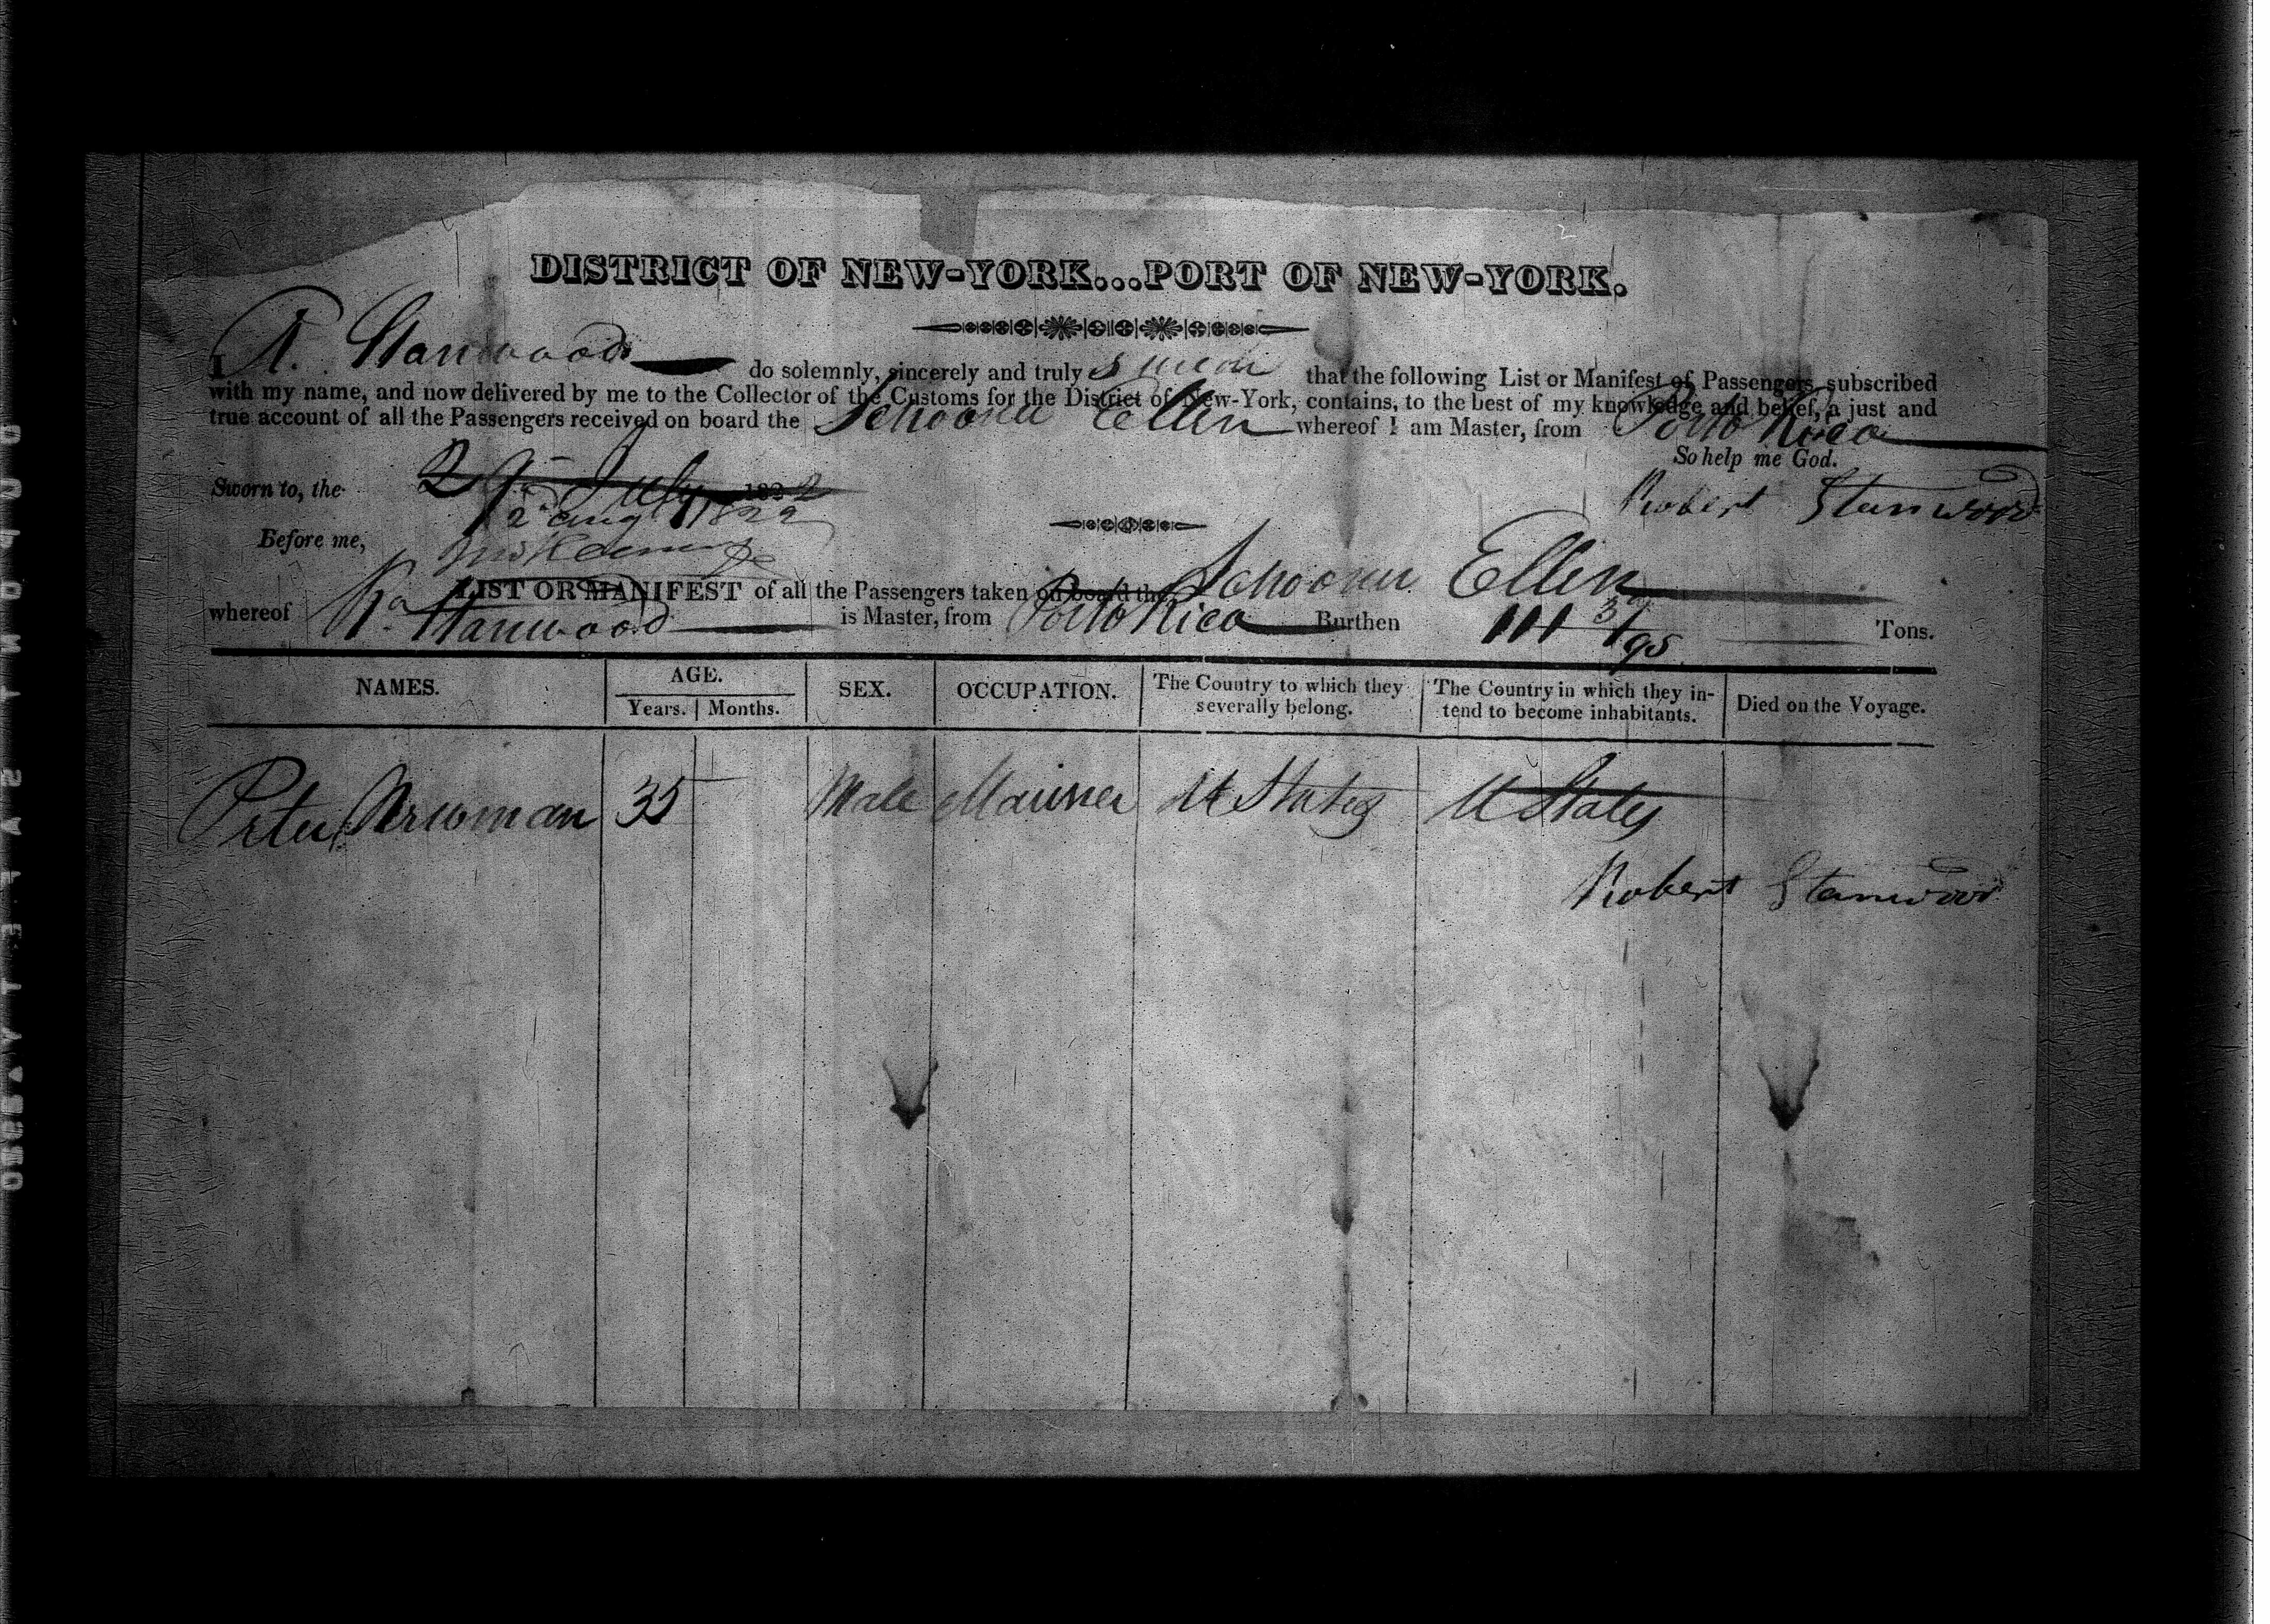 DISTRICT OF NEW-YORK...PORT OF NEW-YORK.
I R. Stanwood do solemnly, sincerely and truly swear that the following List or Manifest of Passengers, subscribed
with my name, and now delivered by me to the Collector of the Customs for the District of New-York, contains, to the best of my knowledge and belief, a just and
true account of all the Passengers received on board the Schooner Ellen whereof I am Master, from Porto Rico
So help me God.
Sworn to, the 29 July 1822
2 aug 1822
Robert Stanwood
Before me,
LIST OR MANIFEST of all the Passengers taken on board the Schooner Ellen
whereof R. Stanwood is Master, from Porto Rico Burthen 111 3/95 Tons.
NAMES. AGE. SEX. OCCUPATION. The Country to which they severally belong. The Country in which they intend to become inhabitants. Died on the Voyage.
Years. Months.
Peter Newman 35 Male Mariner U States U States
Robert Stanwood